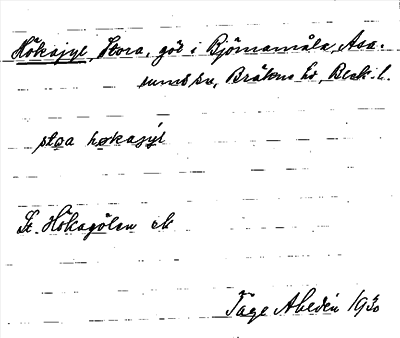 Hökagyl, Stora, göl i Björnamåla, Asa-
rums sn, Bräkne hd, Blek. l.
stoa hokagyl
St. Hökagölen ek
Tage Ahldén 1930